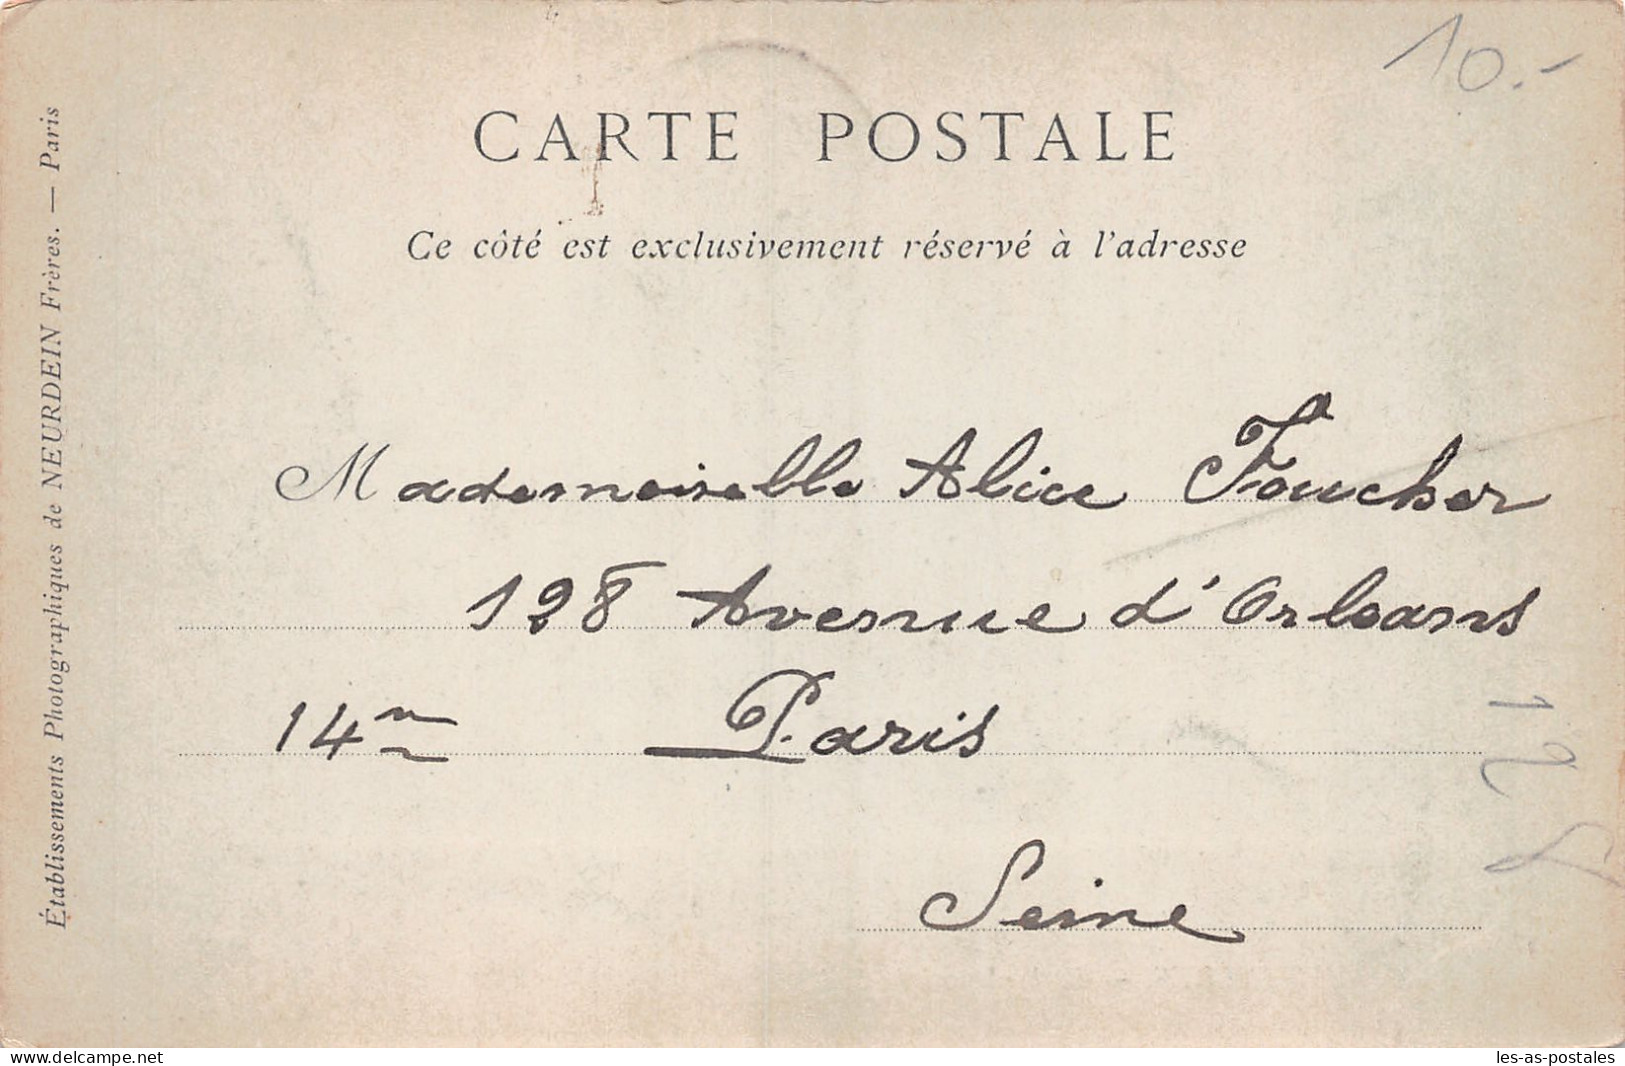 10.-
CARTE POSTALE
Ce côté est exclusivement réservé à l'adresse
Mademoiselle Alice Foucher
128 Avenue d'Orléans
14me Paris
Seine
Établissements Photographiques de NEURDEIN Frères. — Paris
website: delcampe.net
les-as-postales